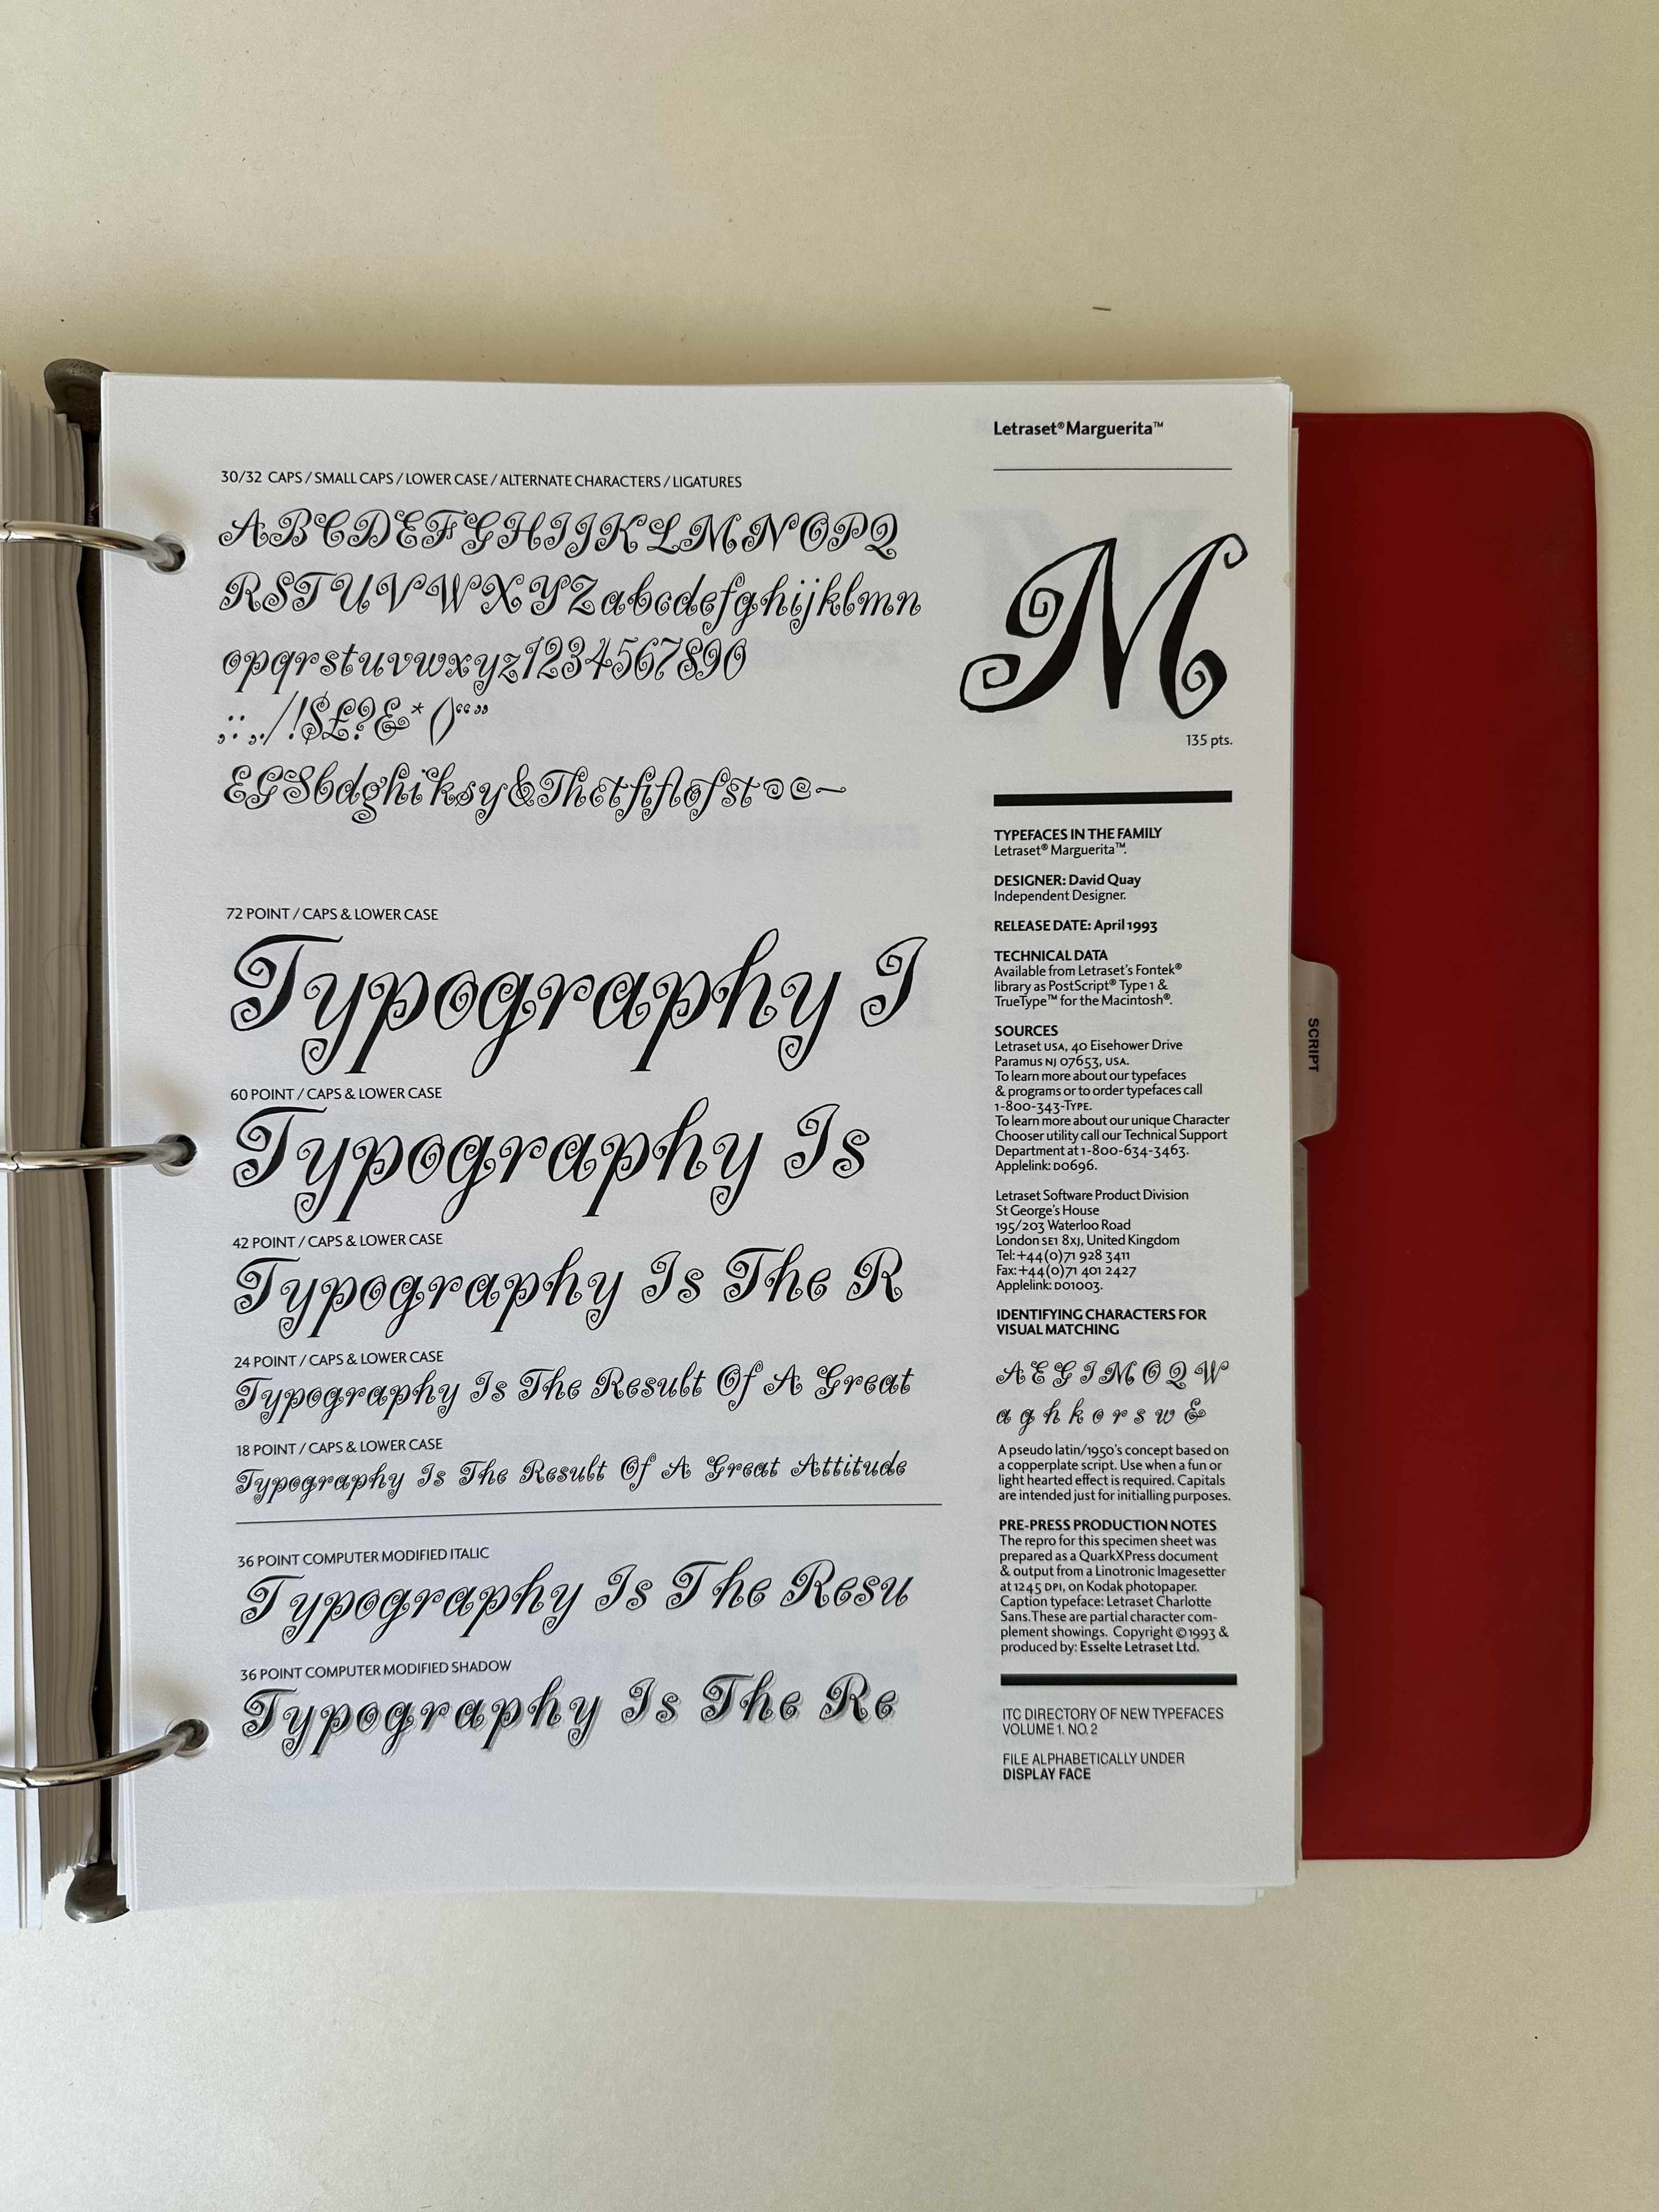 Letraset® Marguerita™
30/32 CAPS / SMALL CAPS / LOWER CASE / ALTERNATE CHARACTERS / LIGATURES
ABCDEFGHIJKLMNOPQ
RSTUVWXYZabcdefghijklmn
opqrstuvwxyz1234567890
;:,./!$£?&*()“”
EGSbdghiksy&Thctfiflofst
M
135 pts.
72 POINT / CAPS & LOWER CASE
Typography I
60 POINT / CAPS & LOWER CASE
Typography Is
42 POINT / CAPS & LOWER CASE
Typography Is The R
24 POINT / CAPS & LOWER CASE
Typography Is The Result Of A Great
18 POINT / CAPS & LOWER CASE
Typography Is The Result Of A Great Attitude
36 POINT COMPUTER MODIFIED ITALIC
Typography Is The Resu
36 POINT COMPUTER MODIFIED SHADOW
Typography Is The Re
TYPEFACES IN THE FAMILY
Letraset® Marguerita™.
DESIGNER: David Quay
Independent Designer.
RELEASE DATE: April 1993
TECHNICAL DATA
Available from Letraset's Fontek®
library as PostScript® Type 1 &
TrueType™ for the Macintosh®.
SOURCES
Letraset USA, 40 Eisehower Drive
Paramus NJ 07653, USA.
To learn more about our typefaces
& programs or to order typefaces call
1-800-343-TYPE.
To learn more about our unique Character
Chooser utility call our Technical Support
Department at 1-800-634-3463.
Applelink: D0696.
Letraset Software Product Division
St George's House
195/203 Waterloo Road
London SE1 8XJ, United Kingdom
Tel: +44 (0)71 928 3411
Fax: +44 (0)71 401 2427
Applelink: D01003.
IDENTIFYING CHARACTERS FOR
VISUAL MATCHING
A E G I M O Q W
a g h k o r s w &
A pseudo latin/1950's concept based on
a copperplate script. Use when a fun or
light hearted effect is required. Capitals
are intended just for initialling purposes.
PRE-PRESS PRODUCTION NOTES
The repro for this specimen sheet was
prepared as a QuarkXPress document
& output from a Linotronic Imagesetter
at 1245 DPI, on Kodak photopaper.
Caption typeface: Letraset Charlotte
Sans. These are partial character com-
plement showings. Copyright © 1993 &
produced by: Esselte Letraset Ltd.
ITC DIRECTORY OF NEW TYPEFACES
VOLUME 1. NO. 2
FILE ALPHABETICALLY UNDER
DISPLAY FACE
SCRIPT